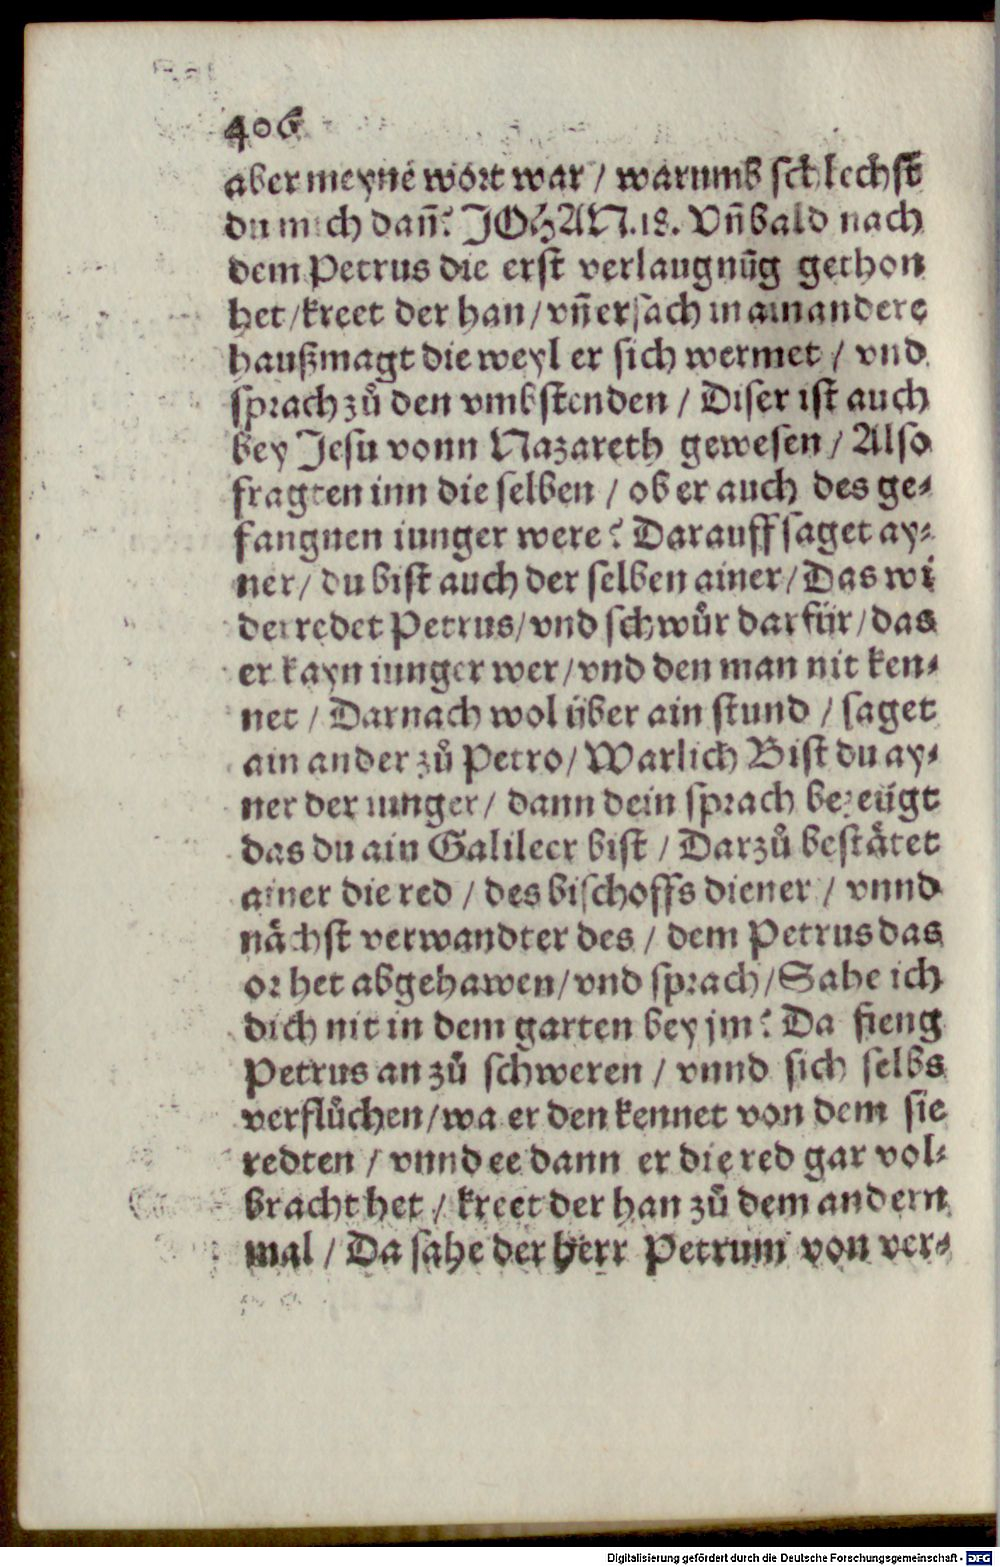 406
aber meyne wort war / warumb schlechst
du mich dañ? JOHAN.18. Vñ bald nach
dem Petrus die erst verlaugnūg gethon
het / kreet der han / vñ ersach in ain andere
haußmagt die weyl er sich wermet / vnd
sprach zů den vmbstenden / Diser ist auch
bey Jesu vonn Nazareth gewesen / Also
fragten inn die selben / ob er auch des ge⸗
fangnen iunger were? Darauff saget ay⸗
ner / du bist auch der selben ainer / Das wi
derredet Petrus / vnd schwůr darfür / das
er kayn iunger wer / vnd den man nit ken⸗
net / Darnach wol über ain stund / saget
ain ander zů Petro / Warlich Bist du ay⸗
ner der iunger / dann dein sprach bezeügt
das du ain Galileer bist / Darzů bestätet
ainer die red / des bischoffs diener / vnnd
nächst verwandter des / dem Petrus das
or het abgehawen / vnd sprach / Sahe ich
dich nit in dem garten bey jm? Da fieng
Petrus an zů schweren / vnnd sich selbs
verflůchen / wa er den kennet von dem sie
redten / vnnd ee dann er die red gar vol⸗
bracht het / kreet der han zů dem andern
mal / Da sahe der herr Petrum von ver⸗
Digitalisierung gefördert durch die Deutsche Forschungsgemeinschaft - DFG